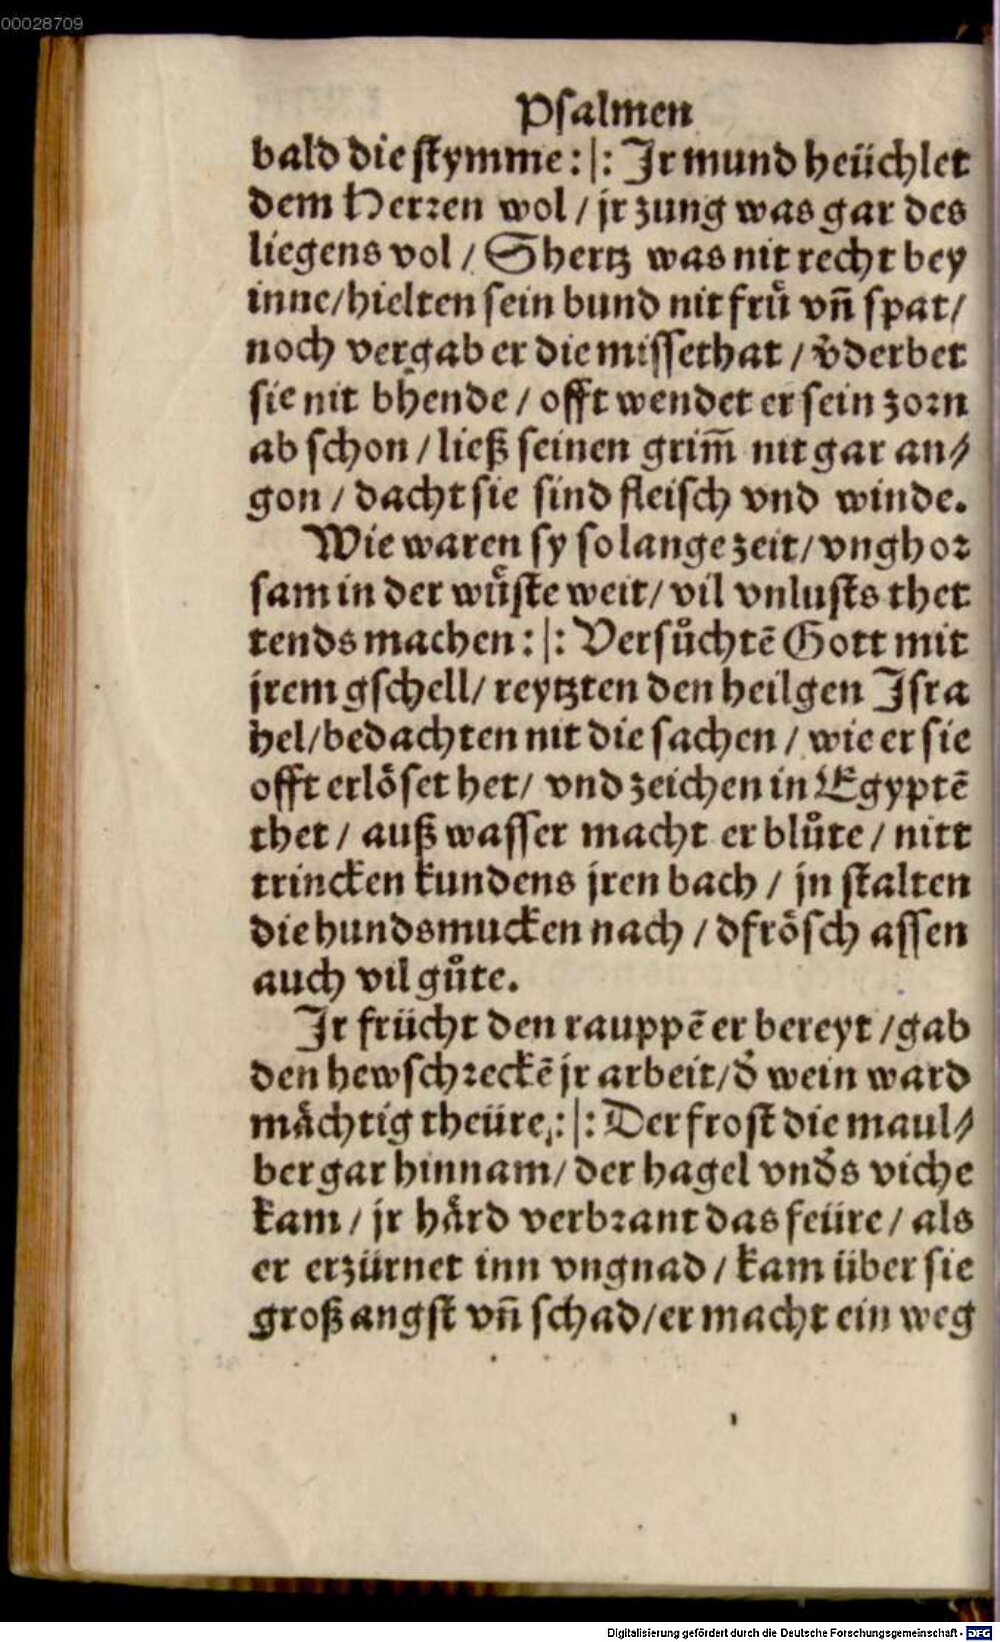 00028709
Psalmen
bald die stymme :|: Jr mund heüchlet
dem Herren wol / jr zung was gar des
liegens vol / Shertz was nit recht bey
inne/hielten sein bund nit frů vñ spat/
noch vergab er die missethat / v̊derbet
sie nit bhende / offt wendet er sein zorn
ab schon / ließ seinen grim̃ nit gar an⸗
gon / dacht sie sind fleisch vnd winde.
Wie waren sy so lange zeit/ vnghor
sam in der wůste weit/ vil vnlusts thet
tends machen :|: Versůchtẽ Gott mit
jrem gschell/ reytzten den heilgen Jsra
hel/bedachten nit die sachen / wie er sie
offt erlöset het/ vnd zeichen in Egyptẽ
thet / auß wasser macht er blůte / nitt
trincken kundens jren bach / jn stalten
die hundsmucken nach / dfrösch assen
auch vil gůte.
Jr frücht den rauppẽ er bereyt /gab
den hewschreckẽ jr arbeit/d̊ wein ward
mächtig theüre :|: Der frost die maul⸗
ber gar hinnam/ der hagel vnd̊s viche
kam / jr härd verbrant das feüre / als
er erzürnet inn vngnad / kam über sie
groß angst vñ schad/er macht ein weg
Digitalisierung gefördert durch die Deutsche Forschungsgemeinschaft - DFG